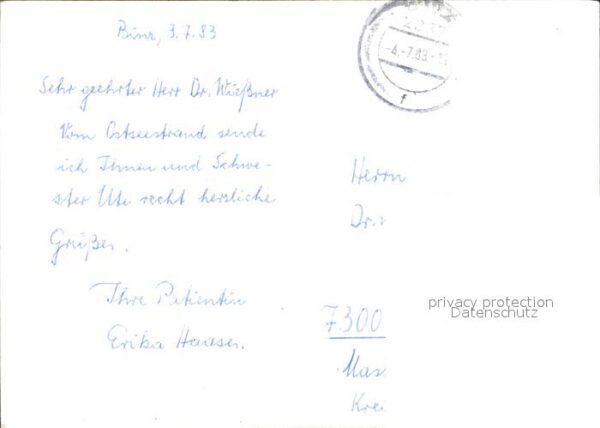 Binz, 3.7.83
Sehr geehrter Herr Dr. Wießner
Vom Ostseestrand sende
ich Ihnen und Schwe-
ster Ute recht herzliche
Grüße.
Ihre Patientin
Erika
-4.-7.83
f
Herrn
Dr.
7300
Kre
privacy protection
Datenschutz